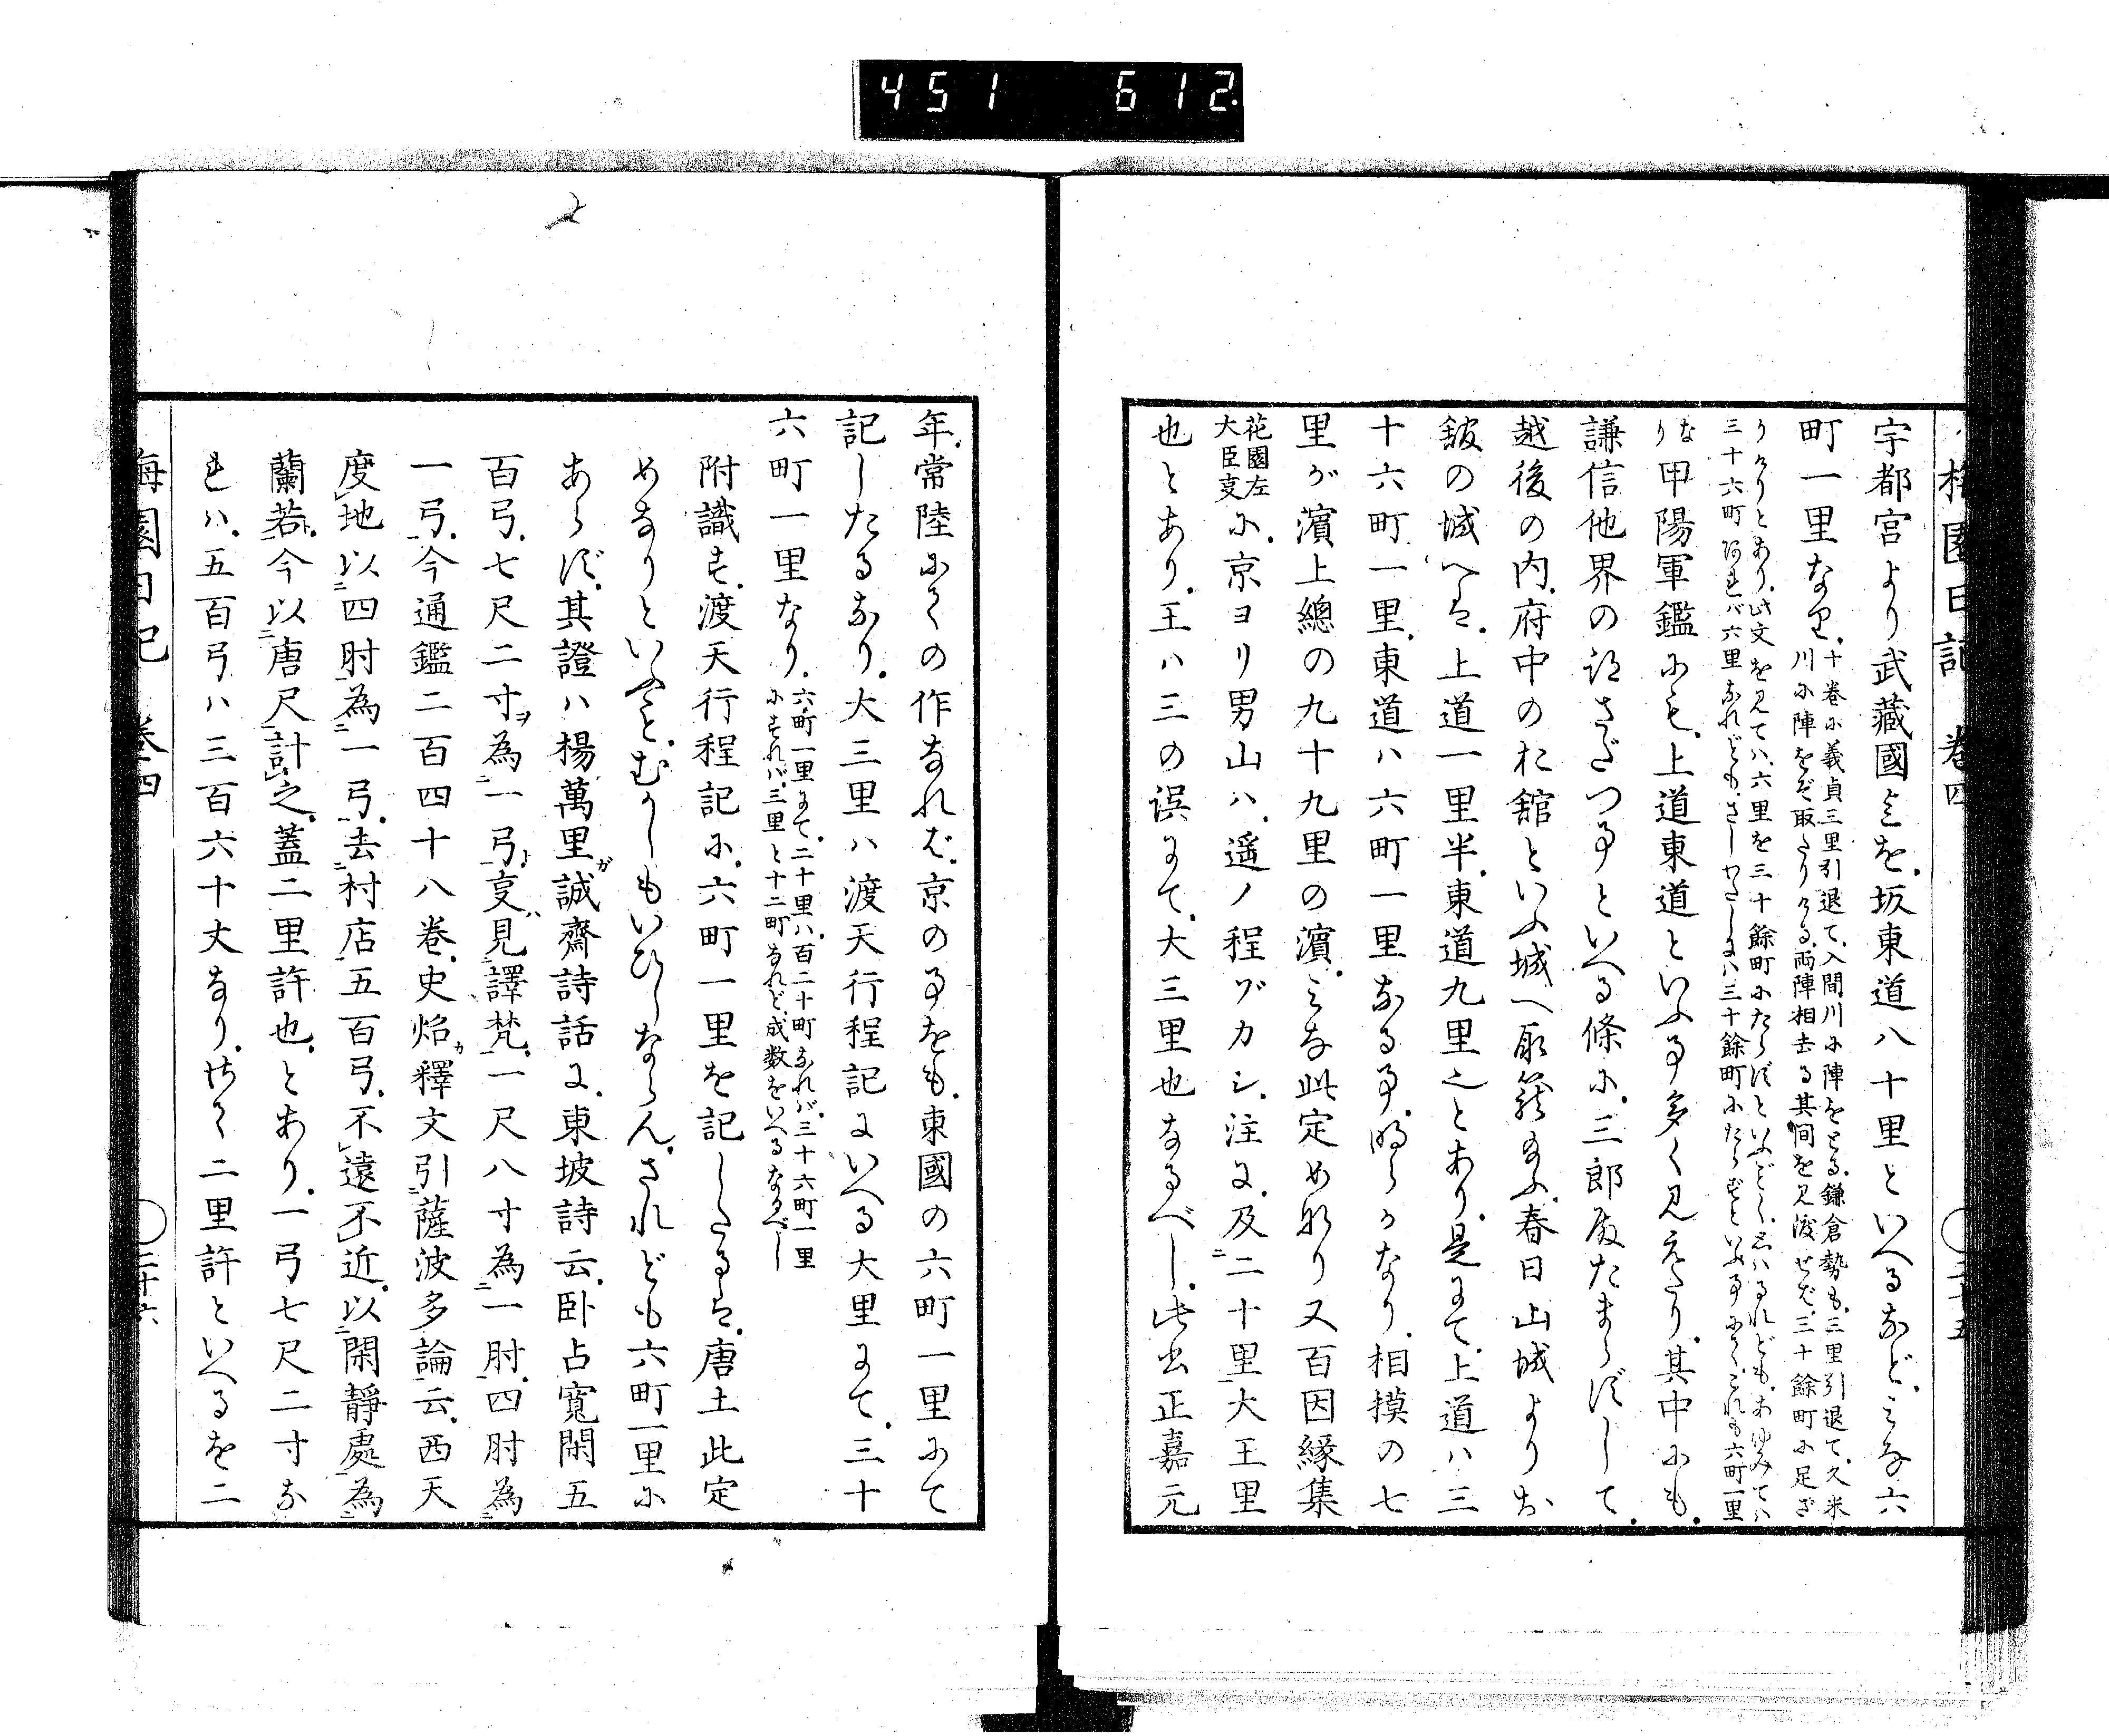 451 612
梅園日記 卷四 二十五
宇都宮より武藏國までを、坂東道八十里といへるなど、みな六
町一里なり、十卷に義貞三里引退て、入間川に陣をとる、鎌倉勢も、三里引退て、久米
川に陣をぞ取たりける、両陣相去る其間を見渡せば、三十餘町に足ざ
りけりとあり、此文を見てハ、六里を三十餘町にたらずといふごとく
三十六町
なり甲陽軍鑑にも、上道東道といふ事多く見えたり、其中にも、
謙信他界の跡さだつ事といへる條に、三郎殿たまらずして、
越後の内、府中のお舘といふ城へ取籠給ふ、春日山城よりお
舘の城へは、上道一里半、東道九里之とあり、是にて、上道ハ三
十六町一里、東道ハ六町一里なる事、明らかなり、相摸の七
里が濱上總の九十九里の濱、みな此定めなり又百因縁集
花園左
大臣亨に、京ヨリ男山ハ、遥ノ程ゾカシ、注に、及二十里大王里
也とあり、王ハ三の誤にて、大三里也なるべし、此書正嘉元
年、常陸にての作なれば、京の事をも、東國の六町一里にて
記したるなり、大三里ハ渡天行程記にいへる大里にて、三十
六町一里なり、六町一里にて、二十里ハ、百二十町なれバ、三十六町一里
にすれバ、三里と十二町なれど、成数をいへるなるべし
附識す、渡天行程記に、六町一里を記したるは、唐土此定
めなりといふこと、むかしもいひしならん、されども六町一里に
あらず、其證ハ楊萬里が誠齋詩話に、東坡詩云、卧占寛閑五
百弓、七尺二寸ヲ為一弓、事見譯梵、一尺八寸為一肘、四肘為
一弓、今通鑑二百四十八卷、史炤カ釋文引薩波多論云、西天
度地以四肘為一弓、去村店五百弓、不遠不近、以閑靜處為
蘭若、今以唐尺計之、蓋二里許也、とあり、一弓七尺二寸な
れハ、五百弓ハ三百六十丈なり、二里許といへるを二
梅園日記 卷四 二十六